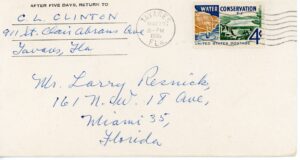 AFTER FIVE DAYS, RETURN TO
C. L. CLINTON
911 St. Clair Abrams Ave
Tavares, Fla
TAVARES
PM
FLA.
WATER CONSERVATION
UNITED STATES POSTAGE
4¢
Mr. Larry Resnick,
161 N.W. 18 Ave,
Miami 35,
Florida